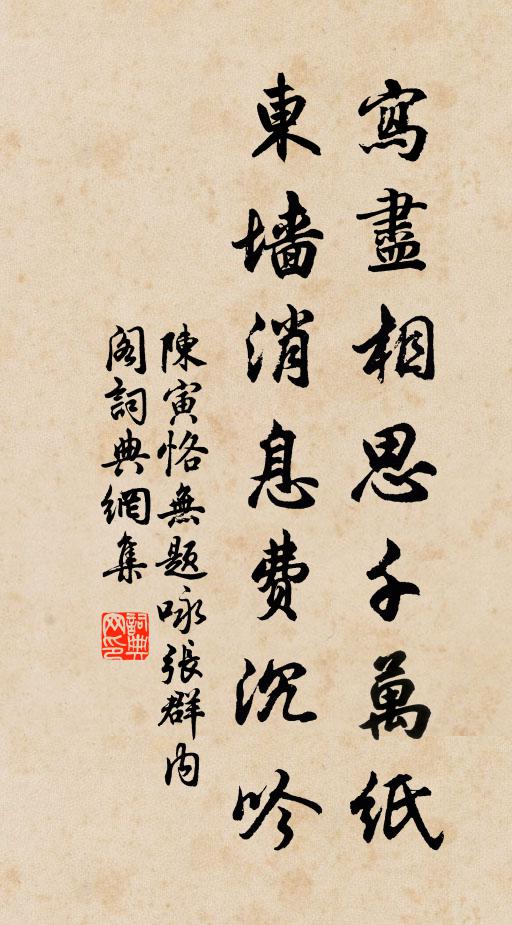 寫盡相思千萬紙
東墻消息費沉吟
陳寅恪無题咏張群内
阁詞典網集
詞典网印